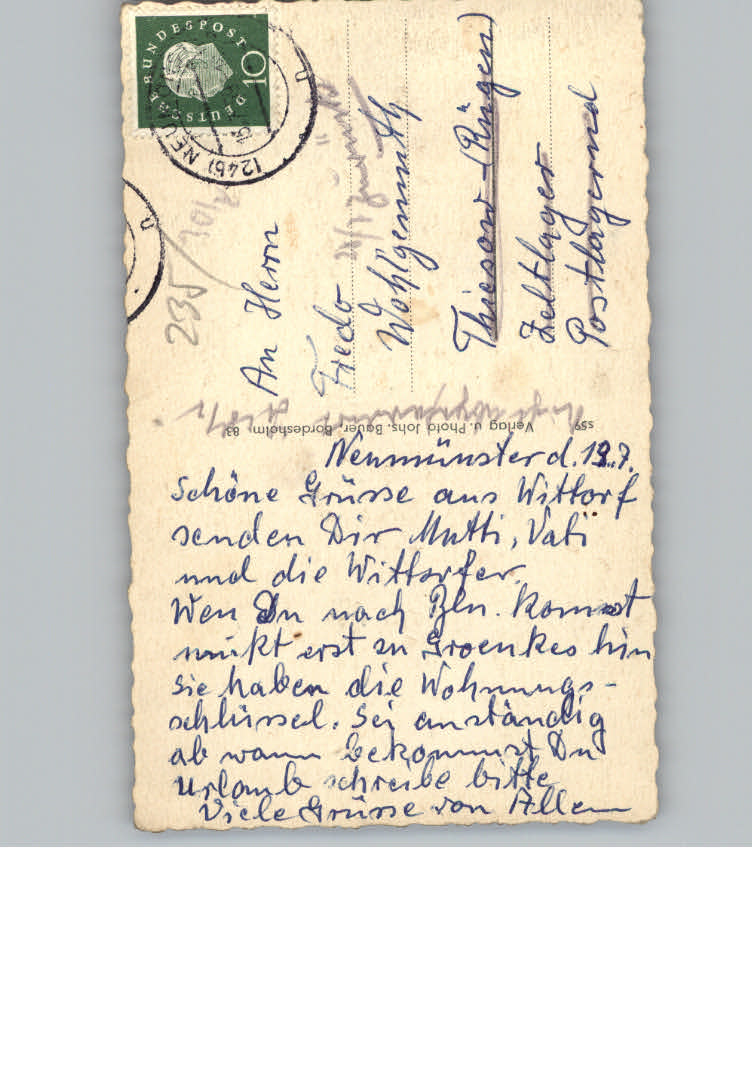 Neumünster d. 19.7.
Schöne Grüsse aus Wittorf
senden Dir Mutti, Vati
und die Wittorfer.
Wen Du nach Bln. kommst
mußt erst zu Groenkes hin
sie haben die Wohnungs-
schlüssel. Sei anständig
ab wann bekommst Du
Urlaub schreibe bitte
Viele Grüsse von Allen
An Herrn
Fredo
Wohlgemuth
Thiesow (Rügen)
Zeltlager
Postlagernd
zurück
235
DEUTSCHE BUNDESPOST
10
(24b) NEUM
s59 Verlag u. Photo Johs. Bauer, Bordesholm. 83